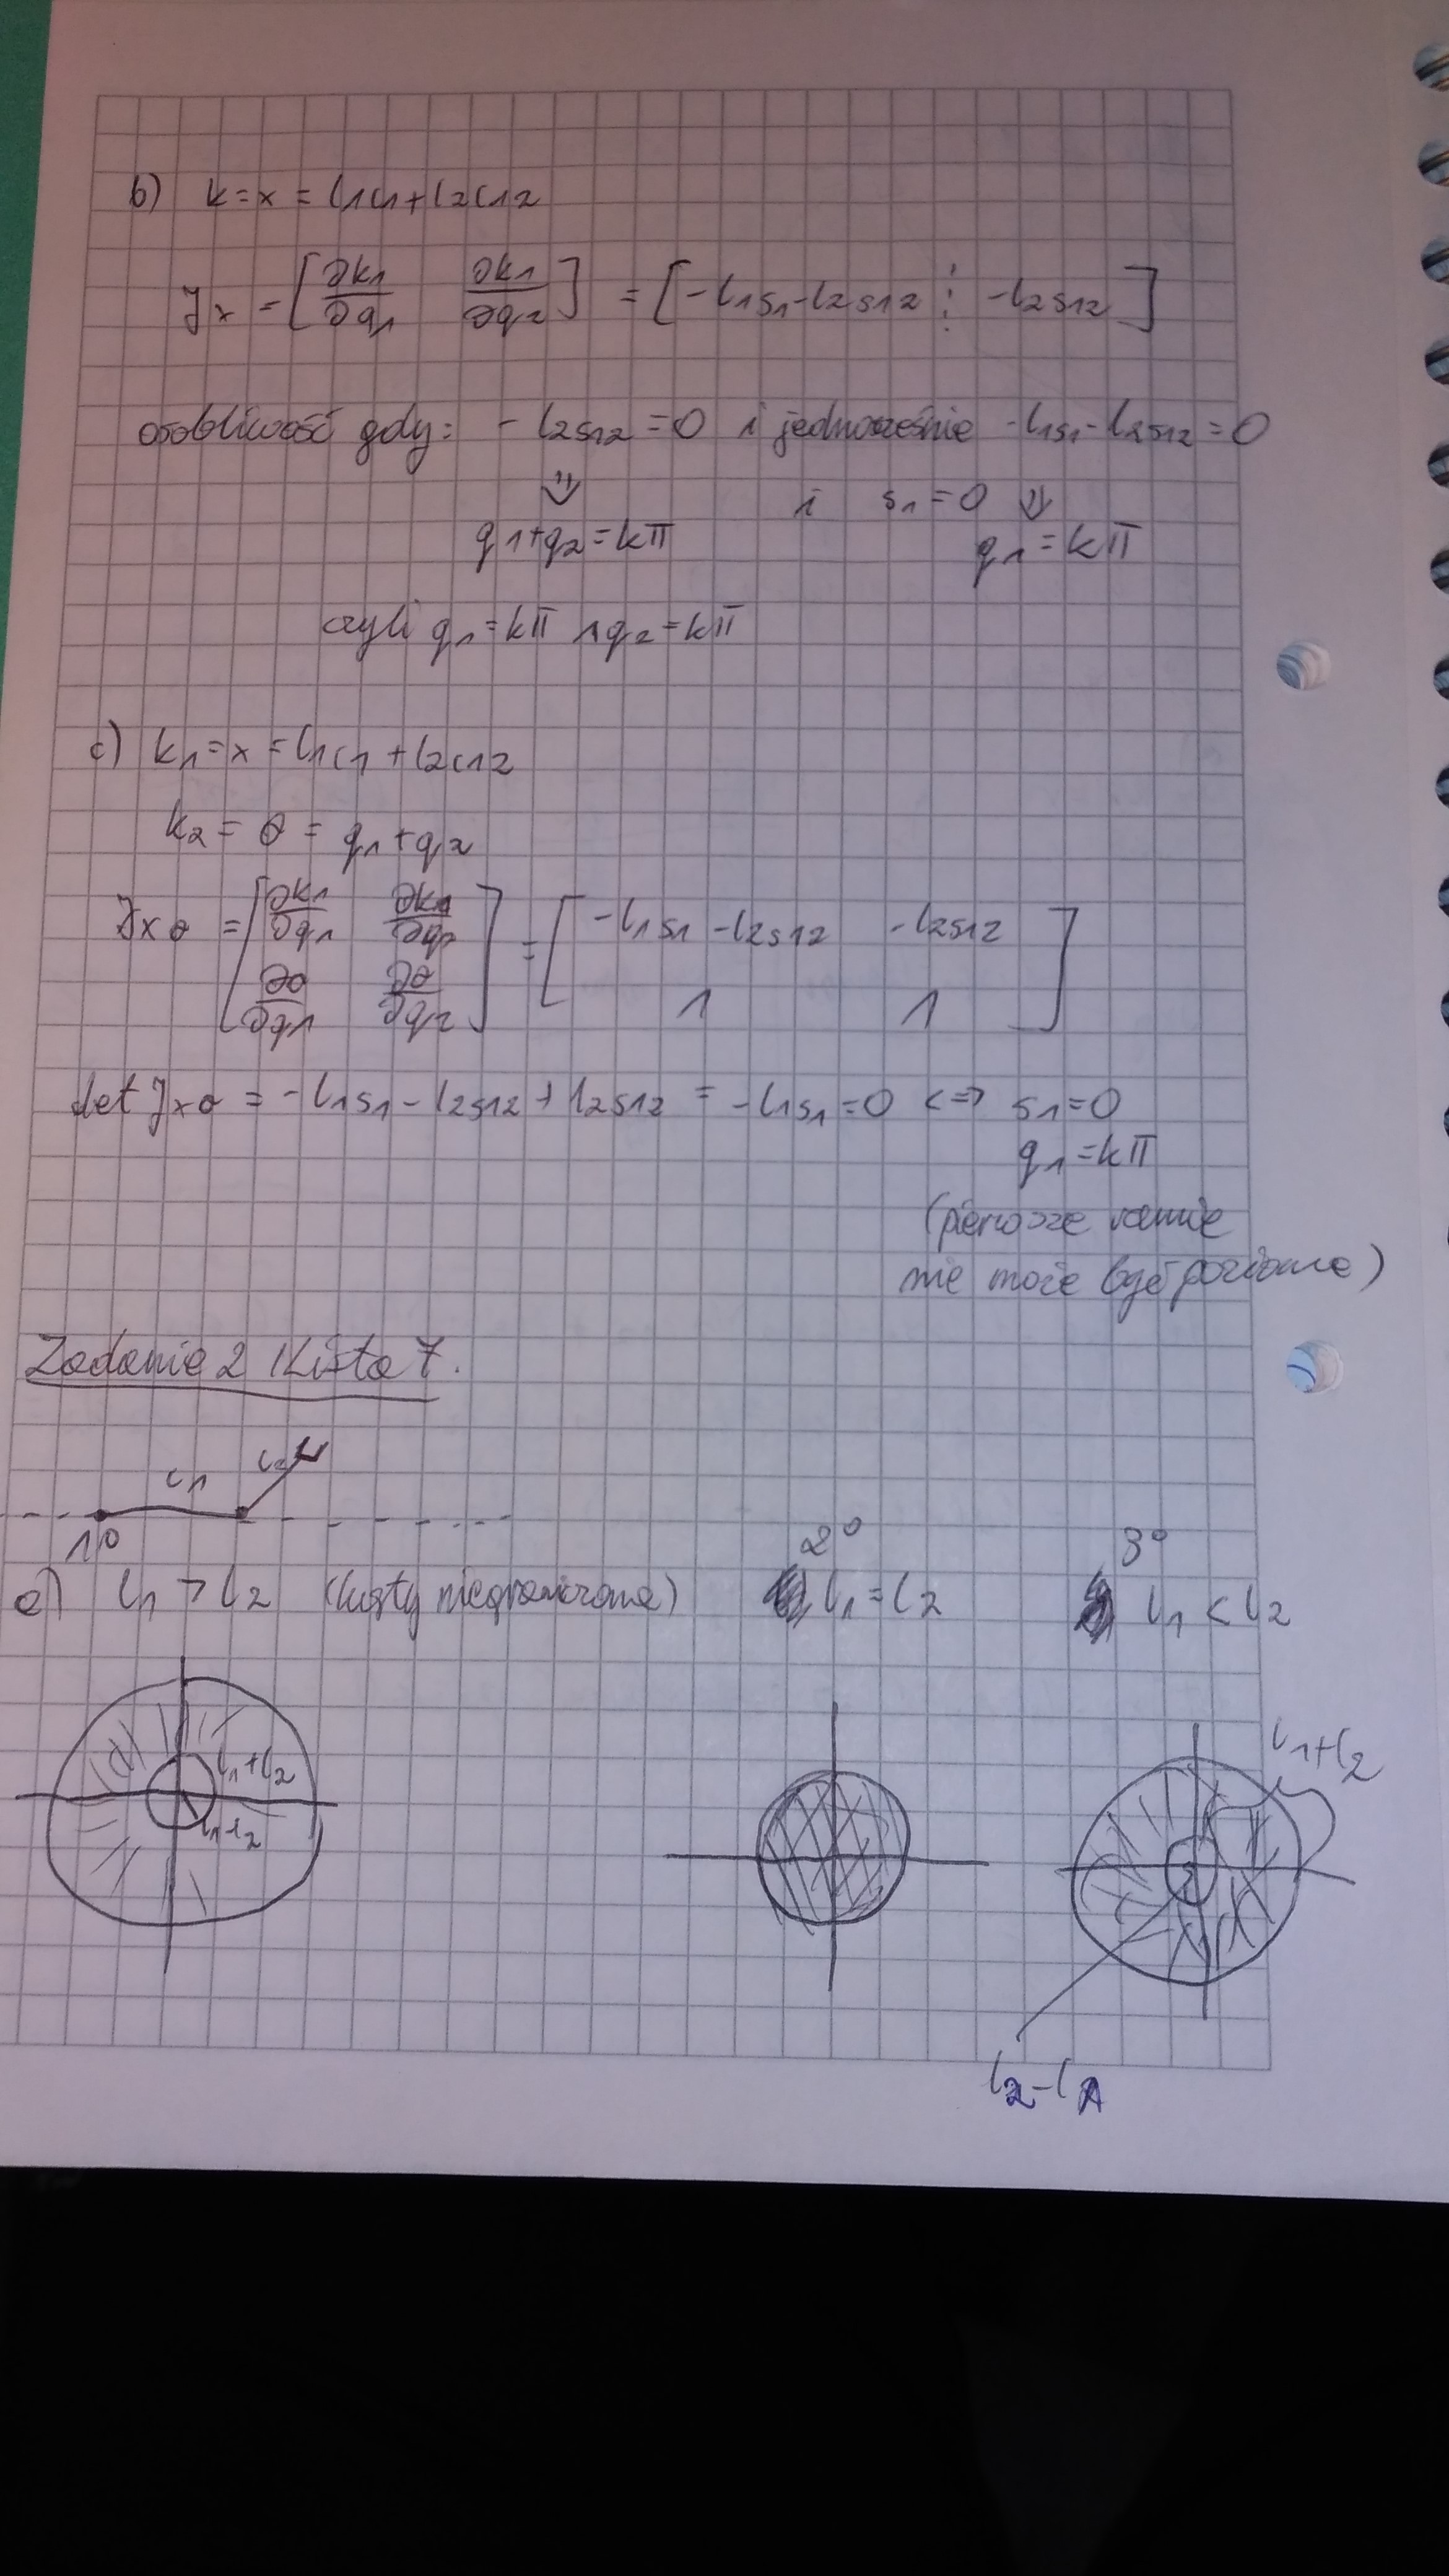 b) k=x = l1c1+l2c12
Jx = [ ∂k1/∂q1 ∂k1/∂q2 ] = [ -l1s1-l2s12 ⋮ -l2s12 ]
osobliwość gdy: - l2s12 =0 i jednocześnie -l1s1-l2s12=0
⇓ i s1=0 ⇓
q1+q2=kπ q1=kπ
czyli q1=kπ ∧ q2=kπ
c) k1=x=l1c1+l2c12
k2= θ = q1+q2
Jxθ = [ ∂k1/∂q1 ∂k1/∂q2 ; ∂θ/∂q1 ∂θ/∂q2 ] = [ -l1s1-l2s12 -l2s12 ; 1 1 ]
det Jxθ = -l1s1-l2s12+l2s12 = -l1s1=0 <=> s1=0
q1=kπ
(pierwsze ramie
nie może być poziome)
Zadanie 2 Lista 7.
l1 l2
1° 2° 3°
a) l1 > l2 (kąty nieograniczone) l1=l2 l1 < l2
l1+l2 l1+l2
l1-l2
l2-l1